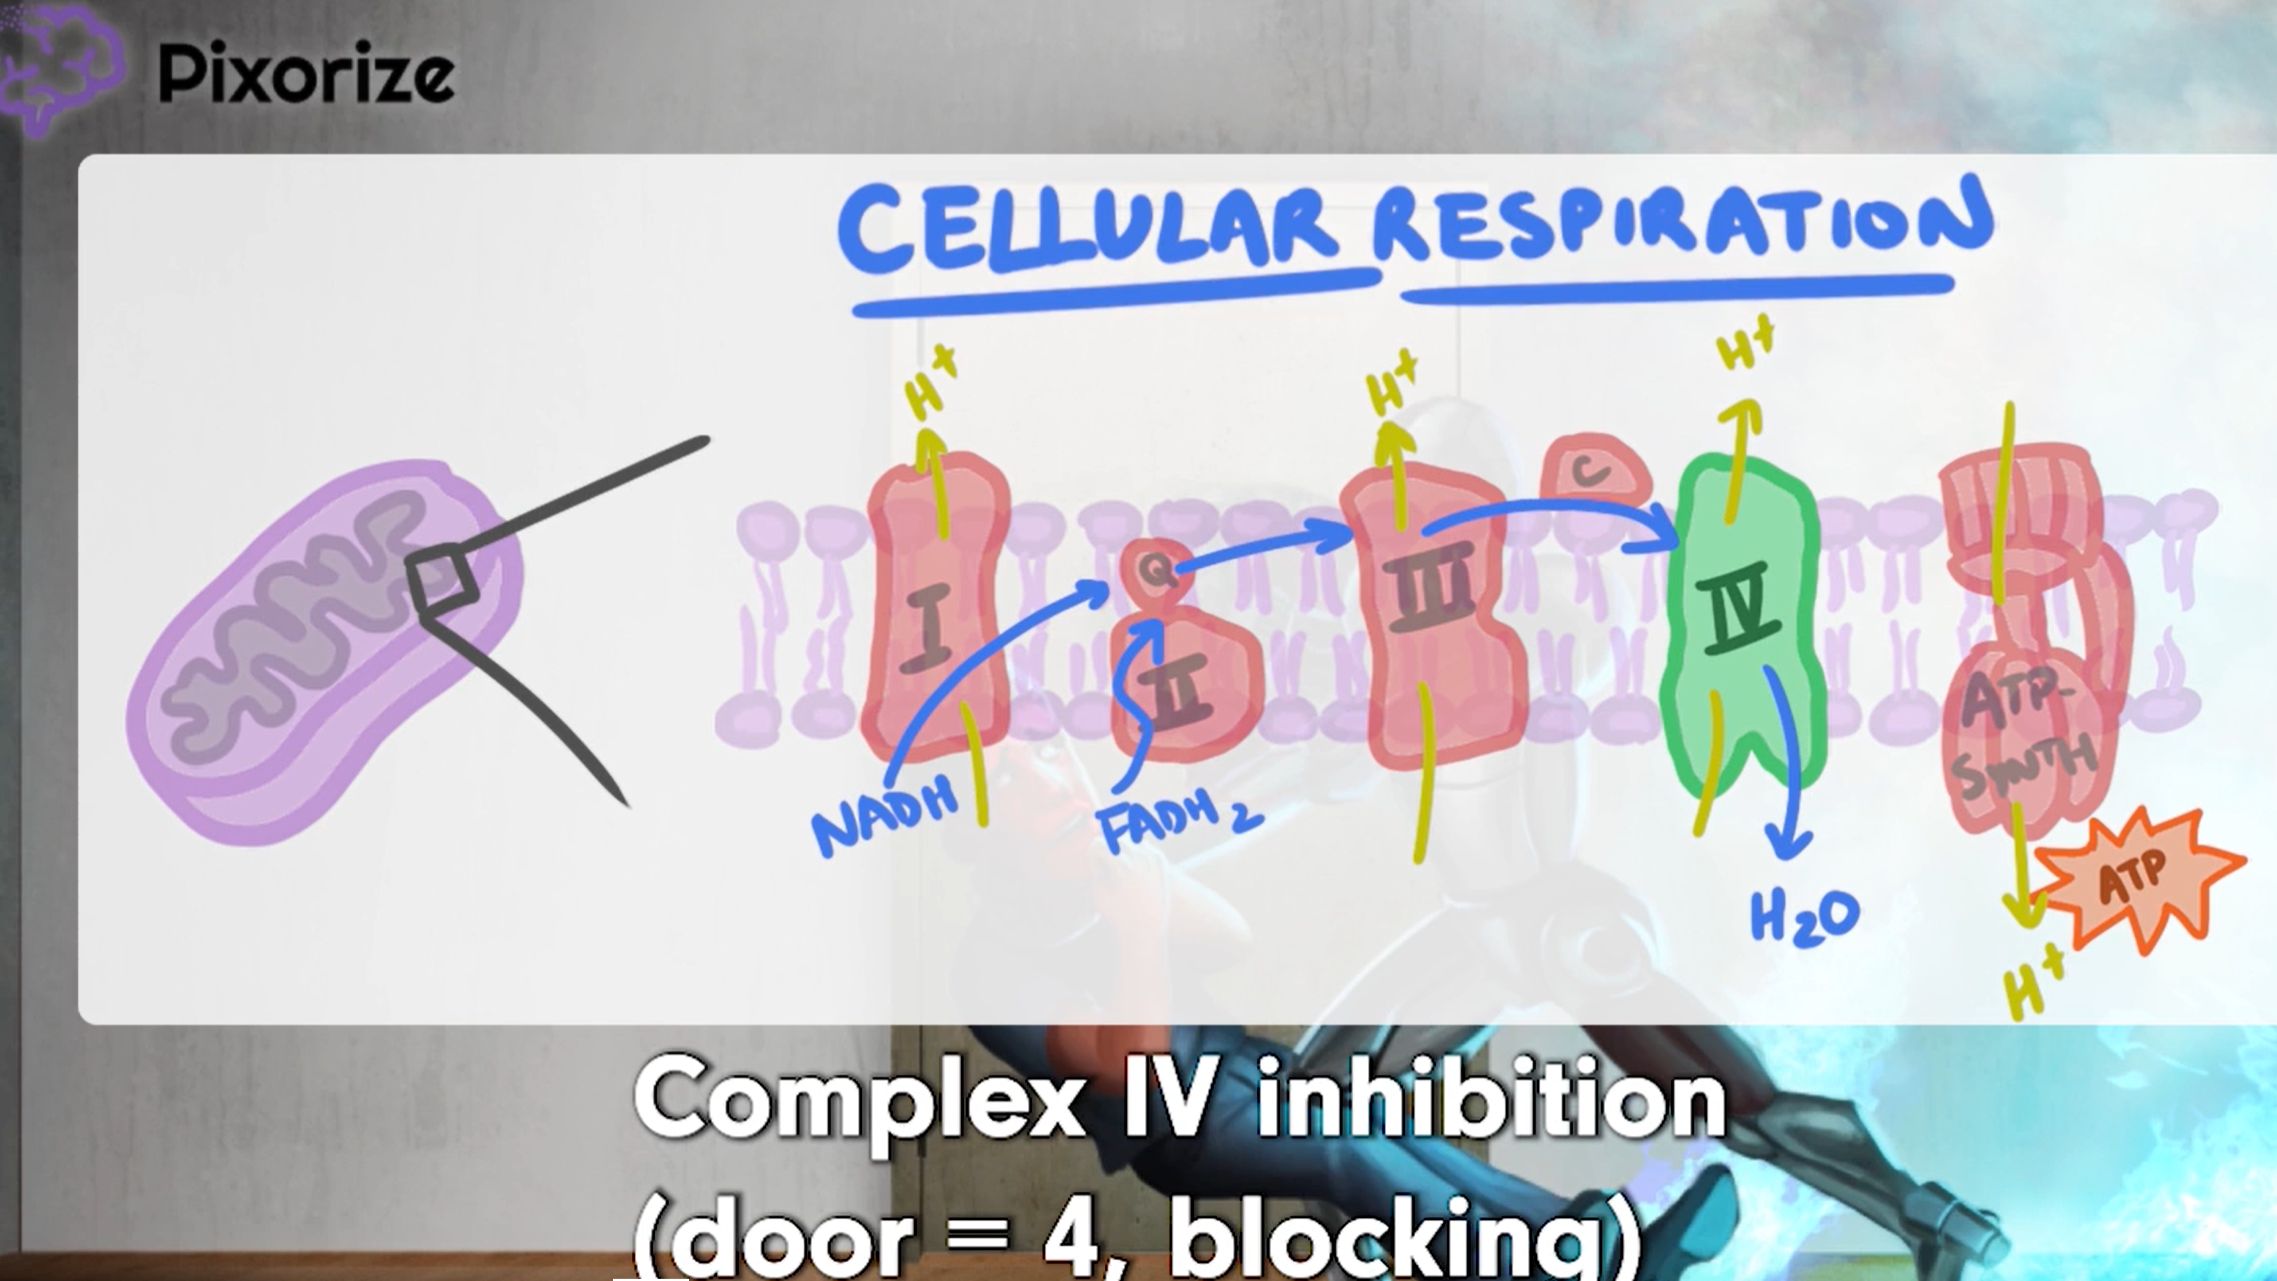 Pixorize
CELLULAR RESPIRATION
H+
H+
H+
C
Q
I
II
III
IV
ATP-
SYNTH
NADH
FADH2
H2O
ATP
H+
Complex IV inhibition
(door = 4, blocking)